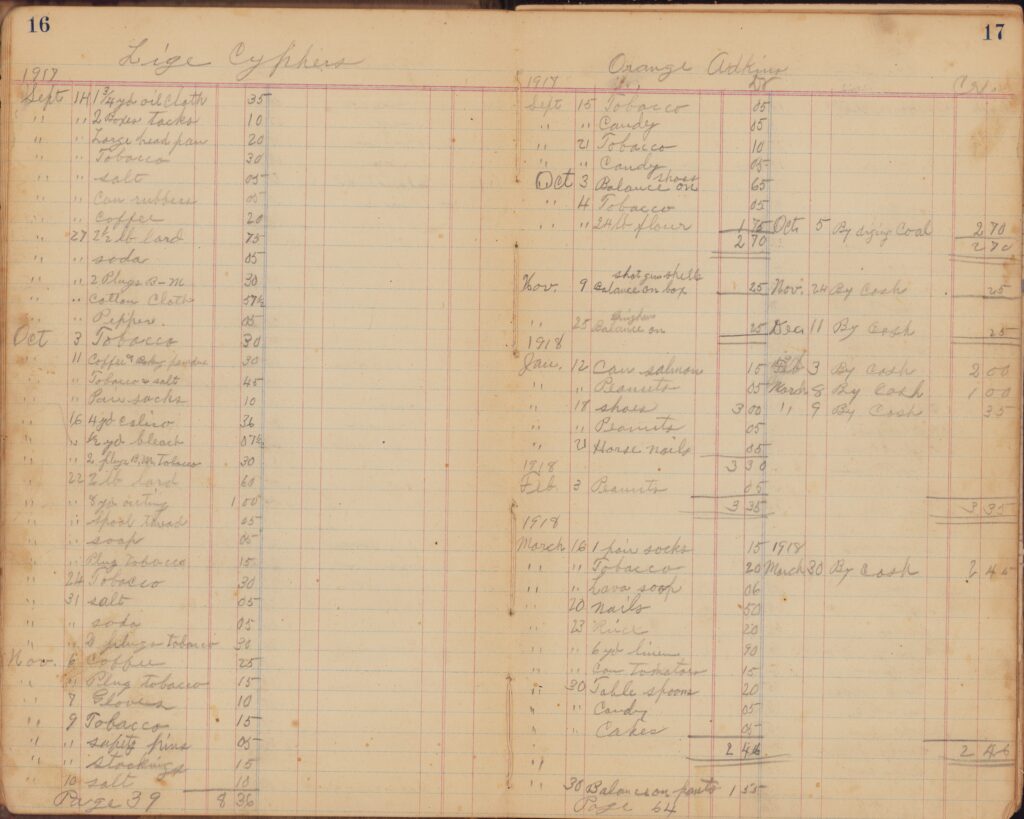 16
Lige Cyphers
1917
Sept 14 1 3/4 yd oil cloth 35
" " 2 Boxes tacks 10
" " Large head pan 20
" " Tobacco 30
" " salt 05
" " Can rubbers 05
" " Coffee 20
" 27 2½ lb lard 75
" " soda 05
" " 2 Plugs B-M 30
" " Cotton Cloth 37½
" " Pepper 05
Oct 3 Tobacco 30
" 11 Coffee & powder 30
" " Tobacco & salt 45
" " Pair socks 10
" 16 4 yd calico 36
" " ½ yd bleach 07½
" " 2 plugs B.M. Tobacco 30
" 22 2 lb lard 60
" " 8 yd outing 1 00
" " Spool thread 05
" " soap 05
" " Plug tobacco 15
" 24 Tobacco 30
" 31 salt 05
" " soda 05
" " 2 plugs tobacco 30
Nov. 6 Coffee 25
" " Plug tobacco 15
" 7 Gloves 10
" 9 Tobacco 15
" " safety pins 05
" " stockings 15
" 10 salt 10
Page 39 8 36
17
Orange Adkins
1917 Dr Cr.
Sept 15 Tobacco 05
" " Candy 05
" 21 Tobacco 10
" " Candy 05
Oct 3 Balance on shoes 65
" 4 Tobacco 05
" " 24 lb flour 1 75 Oct 5 By diging Coal 2 70
2 70 2 70
Nov. 9 Balance on box shot gun shells 25 Nov. 24 By Cash 25
" 25 Balance on 25 Dec 11 By Cash 25
1918
Jan. 12 Can salmon 15 Feb 3 By Cash 2 00
" " Peanuts 05 March 8 By Cash 1 00
" 18 shoes 3 00 " 9 By Cash 35
" " Peanuts 05
" 21 Horse nails 05
1918 3 30
Feb 3 Peanuts 05
3 35 3 35
1918
March 16 1 pair socks 15 1918
" " Tobacco 20 March 30 By Cash 2 45
" " Lava soap 06
" 20 nails 50
" 23 Rice 20
" " 6 yd linen 90
" " Can tomatoes 15
" 30 Table spoons 20
" " Candy 05
" " Cakes 05
" 2 46 2 46
" 30 Balance on pants 1 55
Page 64